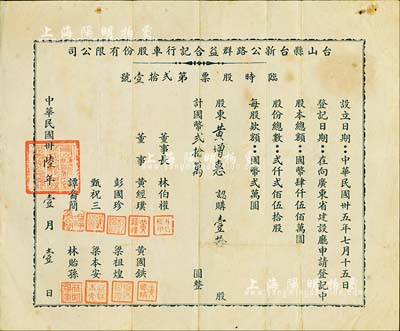 台山縣台新公路群益合記行車股份有限公司
臨時股票第弍拾壹號
設立日期：中華民國卅五年七月十五日
登記日期：在向廣東省建設廳申請登記中
股本總額：國幣肆仟伍佰萬圓
股份總數：弍仟弍佰伍拾股
每股款額：國幣弍萬圓
股東黃增惠認購壹拾股
計國幣弍拾萬圓整
董事長 林伯權
董事 黃經璞 黃國鉷
彭國珍 梁祖煌
甄祝三 梁本安
譚裔簡 林貽孫
中華民國卅陸年壹月壹日
上海陽明拍賣